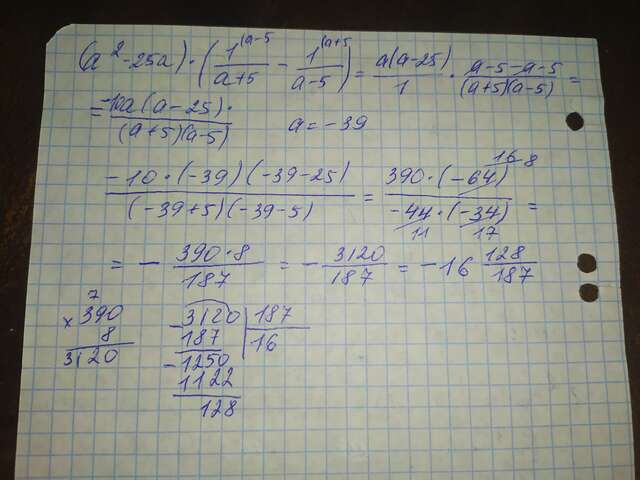 (a² - 25a) · (1^(a-5 / a+5 - 1^(a+5 / a-5) = a(a-25) / 1 · a-5-a-5 / (a+5)(a-5) =
= -10a(a-25) · / (a+5)(a-5) a = -39
-10 · (-39)(-39-25) / (-39+5)(-39-5) = 390 · (-64) 16 8 / -44 · (-34) 11 17 =
= - 390 · 8 / 187 = - 3120 / 187 = -16 128 / 187
7
× 390
8
3120
- 3120 | 187
187 | 16
- 1250
1122
128